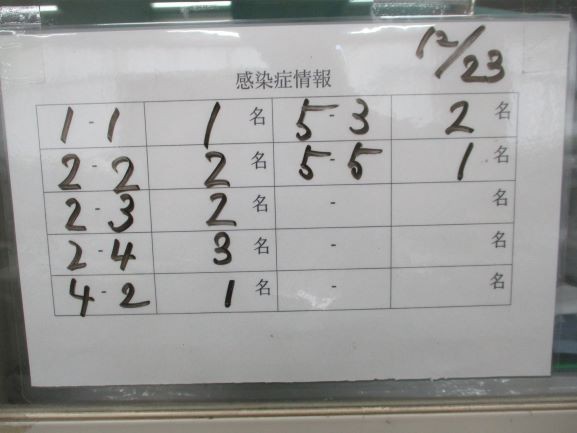 12/23
感染症情報
1-1 1名 5-3 2名
2-2 2名 5-5 1名
2-3 2名 - 名
2-4 3名 - 名
4-2 1名 - 名